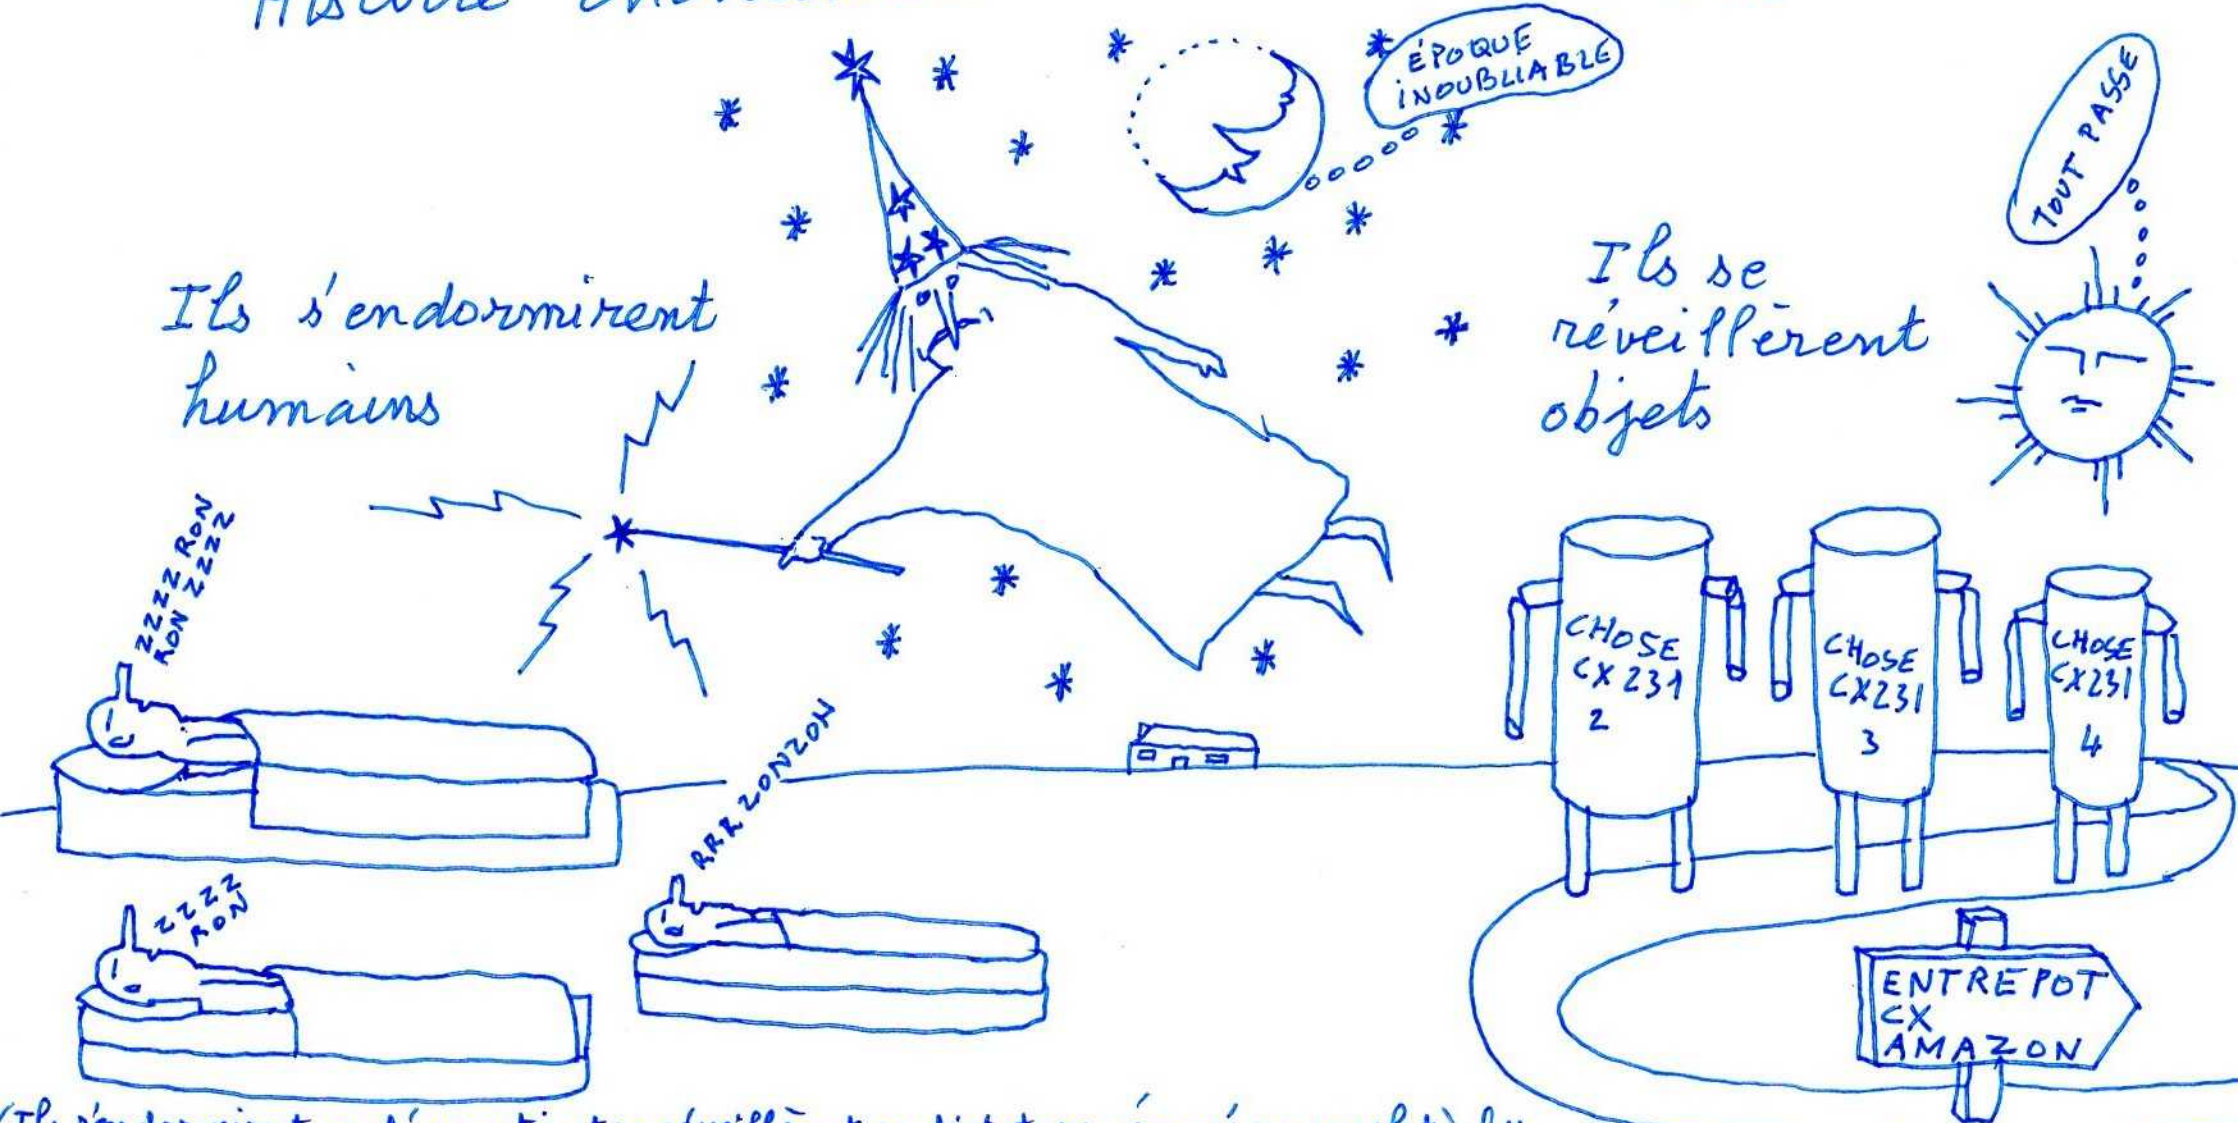 Histoire
ÉPOQUE
INOUBLIABLE
TOUT PASSE
Ils s'endormirent
humains
Ils se
réveillèrent
objets
ZZZZ RON
RON ZZZZ
RRRZONZON
ZZZZ
RON
CHOSE
CX231
2
CHOSE
CX231
3
CHOSE
CX231
4
ENTREPOT
CX
AMAZON
(Ils s'endormirent